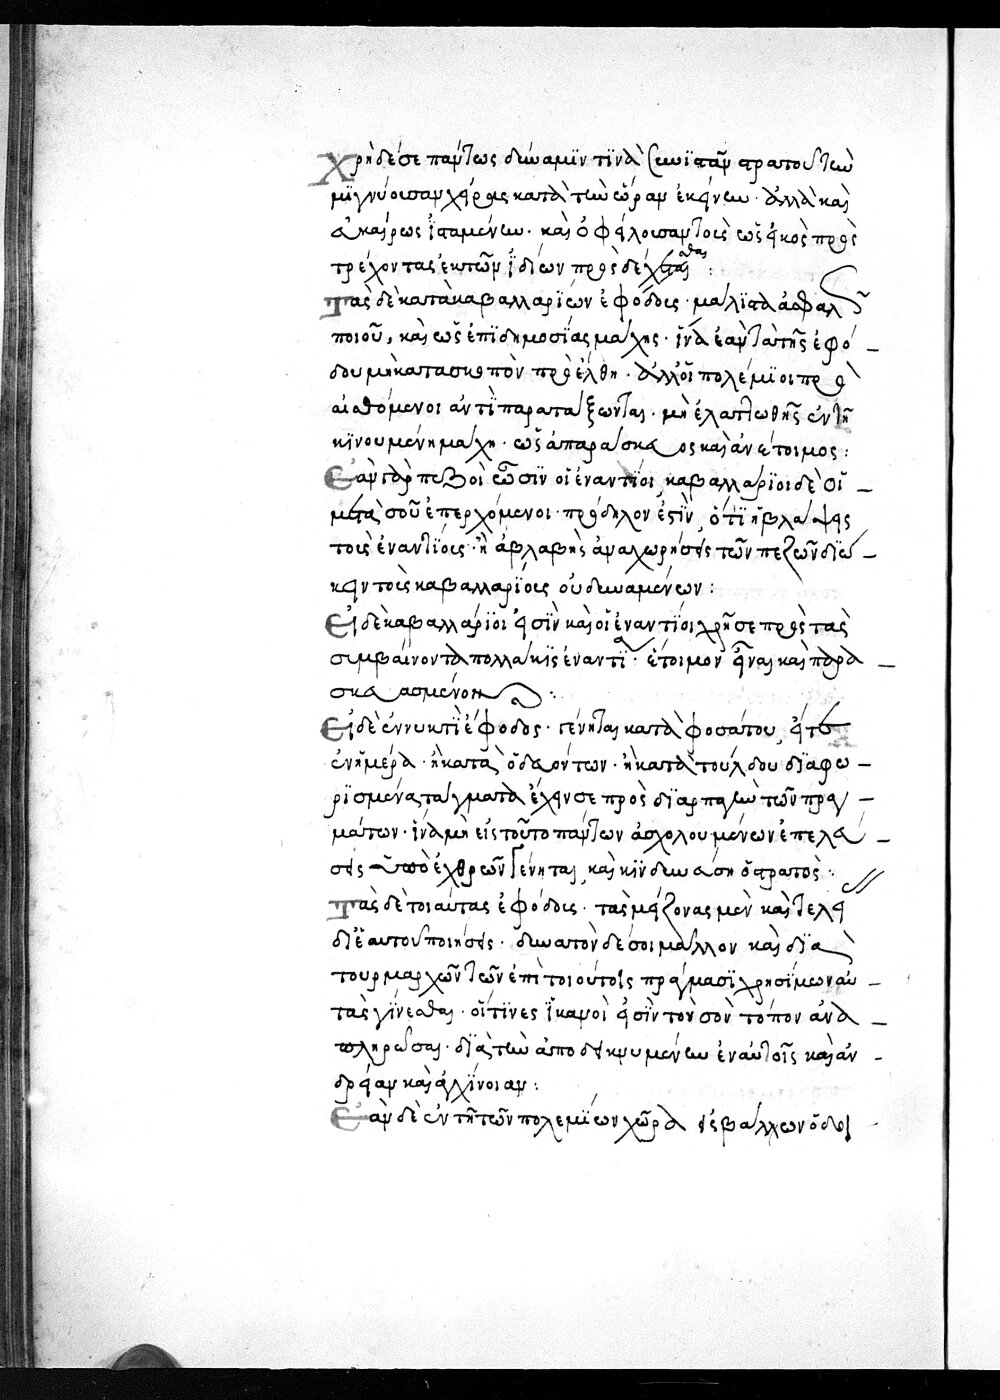 Χρὴ δέ σε πάντως δύναμιν τινὰ συνιστᾶν στρατοῦ τὴν
μιγνύουσαν χεῖρας κατὰ τὴν ὥραν ἐκείνην· ἀλλὰ καὶ
ἀκαίρως ἱσταμένην· καὶ ὀφείλουσαν τοῖς ὡς εἰκὸς προς
τρέχοντας ἐκ τῶν ἰδίων προσδέχεσθαι :
Τὰς δὲ κατὰ καβαλλαρίων ἐφόδους· μάλιστα ἀσφαλῶς
ποιοῦ, καὶ ὡς ἐπὶ δημοσίας μάχης· ἵνα ἐὰν τὰ τῆς ἐφό
δου μὴ κατὰ σκοπὸν προέλθη· ἀλλ' οἱ πολέμιοι προ
αισθόμενοι ἀντιπαρατάξωνται· μὴ ἐλαττωθῆς ἐν τῇ
κινουμένη μάχη· ὡς ἀπαράσκευος καὶ ἀνέτοιμος :
Ἐὰν γὰρ πεζοὶ ὦσιν οἱ ἐναντίοι, καβαλλάριοι δὲ οἱ
μετὰ σοῦ ἐπερχόμενοι· πρόδηλον ἐστὶν, ὅτι ἢ βλάψεις
τοὺς ἐναντίους· ἢ ἀβλαβὴς ἀναχωρήσεις τῶν πεζῶν διώ
κειν τοὺς καβαλλαρίους οὐ δυναμένων :
Εἰ δὲ καβαλλάριοι εἰσὶν καὶ οἱ ἐναντίοι χρή σε πρὸς τὰς
συμβαίνοντα πολλάκις ἐναντία· ἕτοιμον εἶναι καὶ παρα
σκευασμένον :
Εἰ δὲ ἐν νυκτὶ ἔφοδος· γένηται κατὰ φοσάτου, εἴτε
ἐν ἡμέρα· ἢ κατὰ ὁδευόντων· ἢ κατὰ τούλδου διαφω
ρισμένα τάγματα ἔχειν σε πρὸς διαρπαγὴν τῶν πραγ
μάτων· ἵνα μὴ εἰς τοῦτο πάντων ἀσχολουμένων ἐπέλευ
σις ὑπὸ ἐχθρῶν γένηται, καὶ κινδυνεύση ὁ στρατὸς :
Τὰς δὲ τοιαύτας ἐφόδους· τὰς μείζονας μὲν καὶ τελεί
δι' ἑαυτοῦ ποιήσεις· δυνατὸν δέ σοι μᾶλλον καὶ διὰ
τουρμαρχῶν τῶν ἐπὶ τοιούτοις πράγμασι χρησίμων αὐ
τὰς γίνεσθαι· οἵτινες ἱκανοὶ εἰσὶν τὸν σὸν τόπον ἀνα
πληρῶσαι· διὰ τὴν ἀποδεικνυμένην ἐν αὐτοῖς καὶ ἀν
δρείαν καὶ ἀγχίνοιαν :
Ἐὰν δὲ ἐν τῇ τῶν πολεμίων χώρα εἰσβάλλων ὅδοι